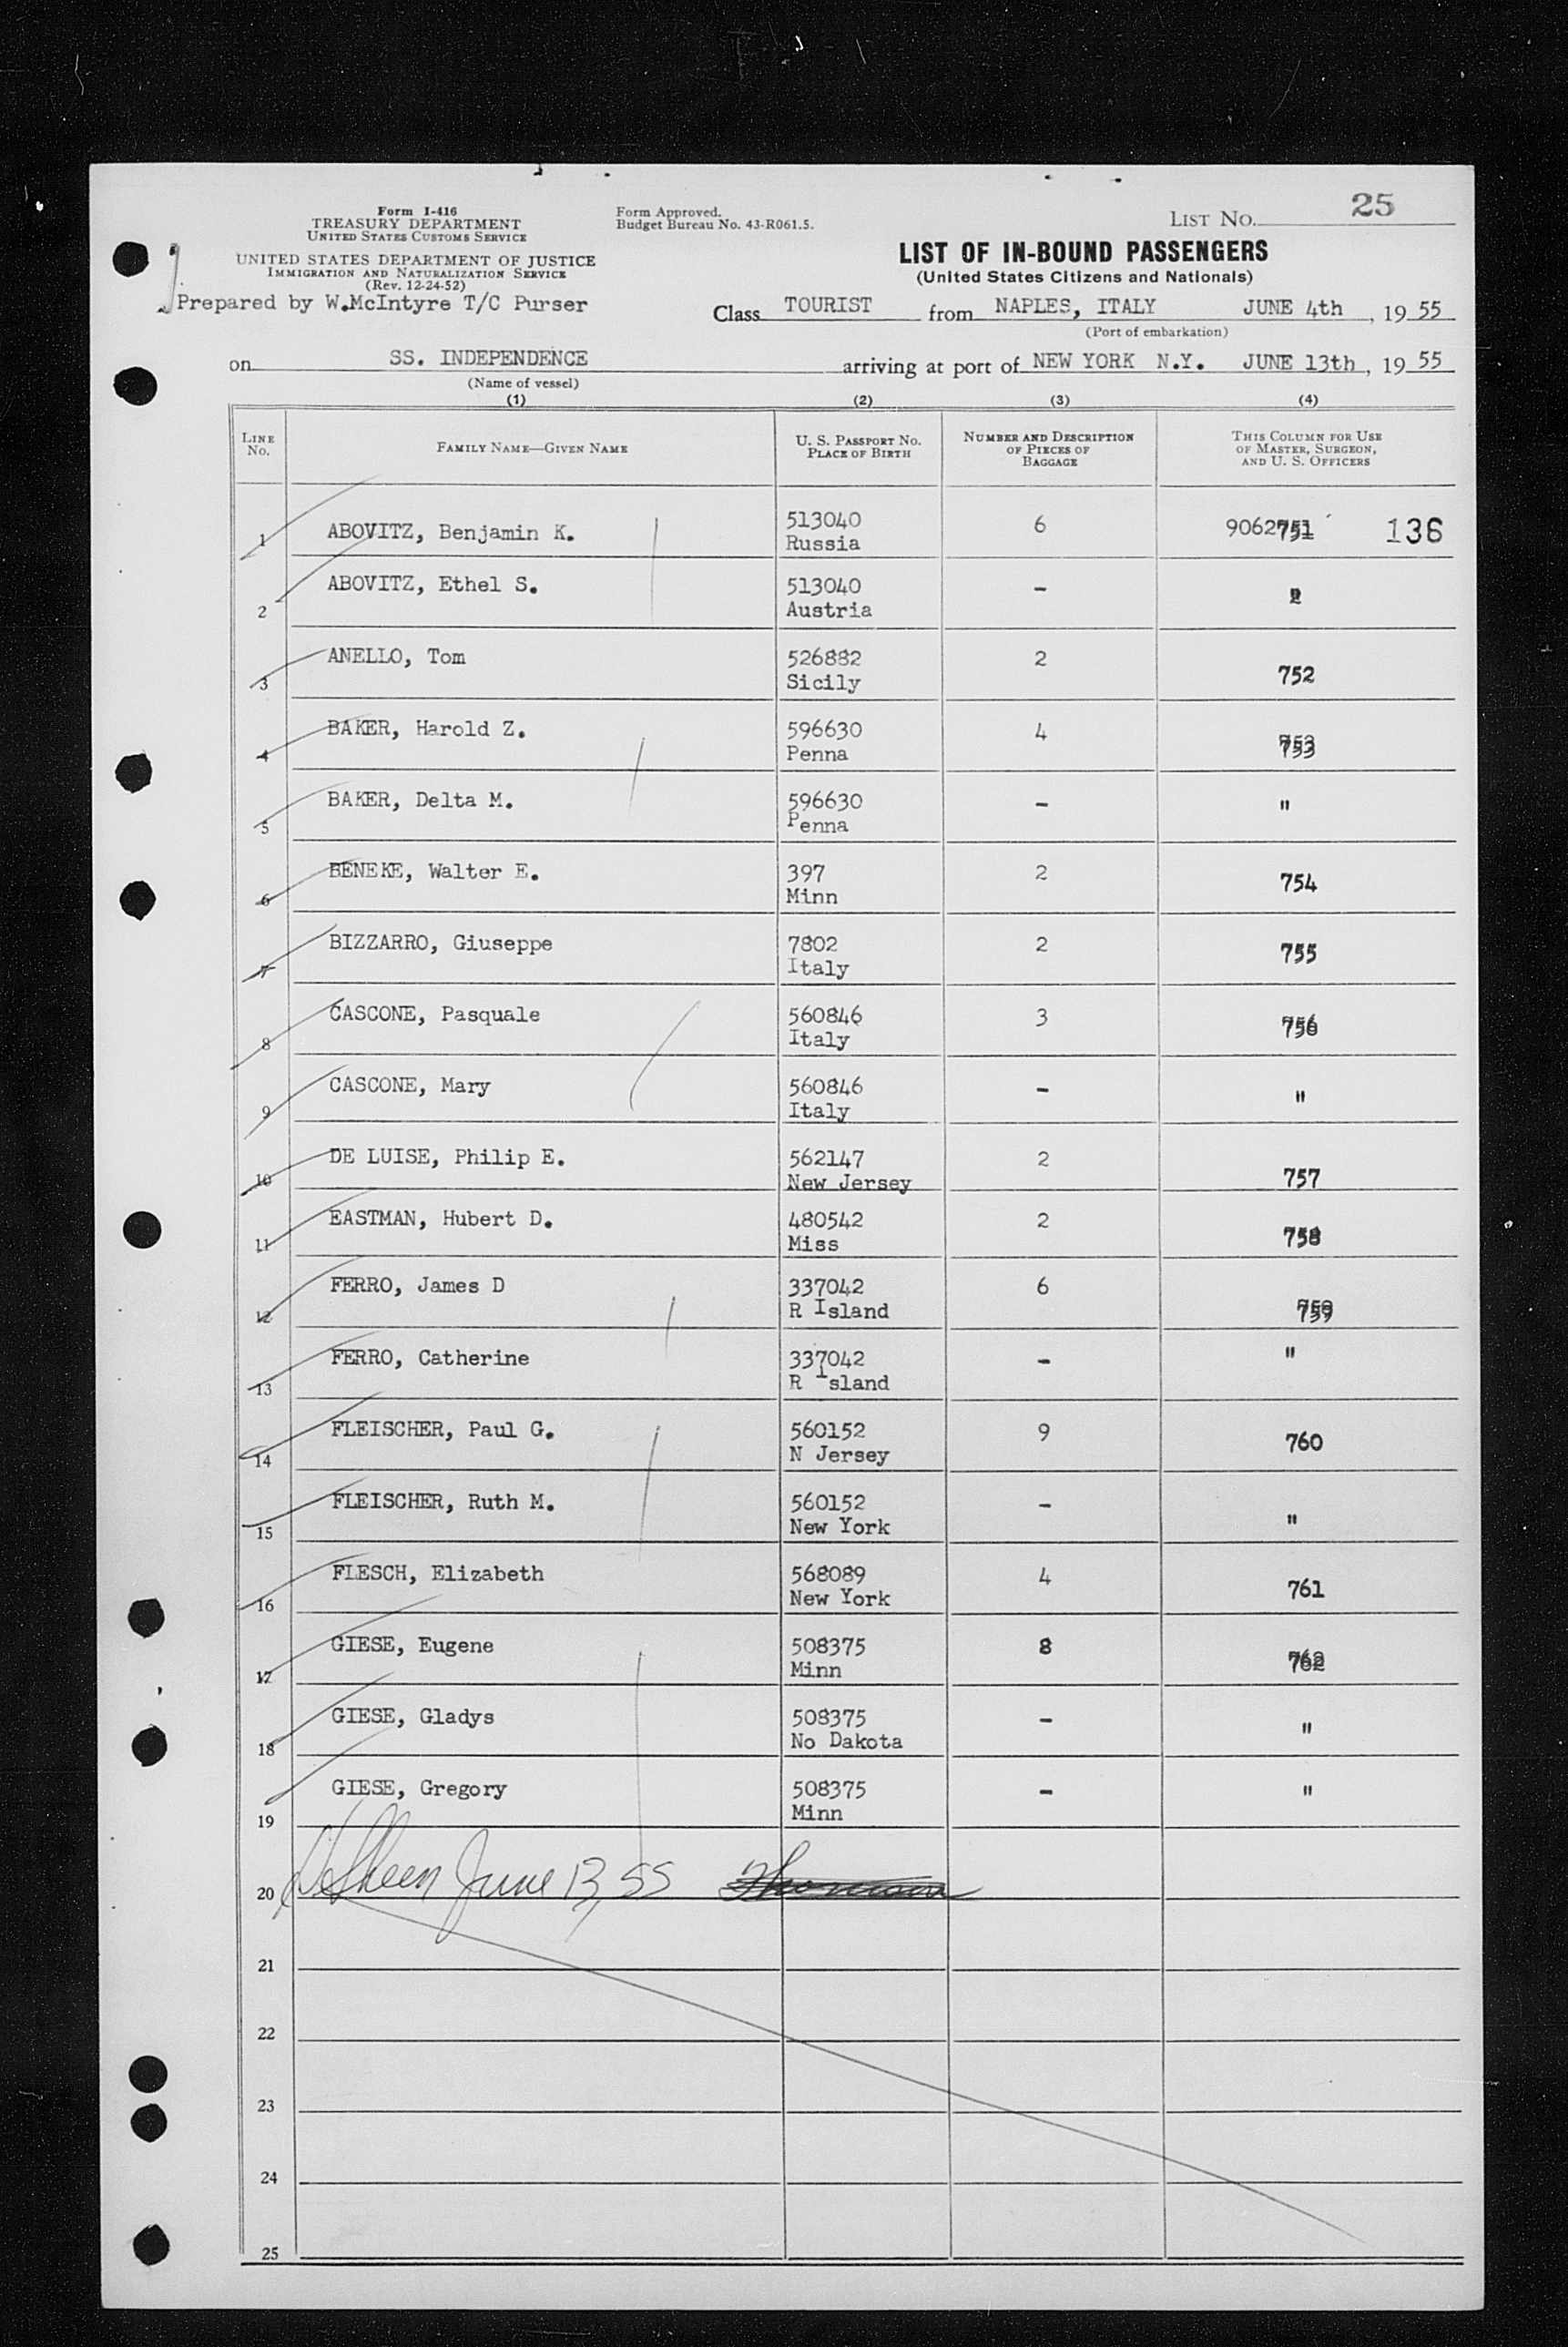 25
Form I-416
TREASURY DEPARTMENT
UNITED STATES CUSTOMS SERVICE
Form Approved.
Budget Bureau No. 43-R061.5.
LIST NO.
UNITED STATES DEPARTMENT OF JUSTICE
IMMIGRATION AND NATURALIZATION SERVICE
(Rev. 12-24-52)
LIST OF IN-BOUND PASSENGERS
(United States Citizens and Nationals)
Prepared by W.McIntyre T/C Purser
Class TOURIST from NAPLES, ITALY JUNE 4th, 19 55
(Port of embarkation)
on SS. INDEPENDENCE arriving at port of NEW YORK N.Y. JUNE 13th, 19 55
(Name of vessel)
(1) (2) (3) (4)
LINE NO. FAMILY NAME—GIVEN NAME U. S. PASSPORT NO. PLACE OF BIRTH NUMBER AND DESCRIPTION OF PIECES OF BAGGAGE THIS COLUMN FOR USE OF MASTER, SURGEON, AND U. S. OFFICERS
1 ABOVITZ, Benjamin K. 513040 6 9062751 136
Russia
2 ABOVITZ, Ethel S. 513040 -
Austria
3 ANELLO, Tom 526882 2 752
Sicily
4 BAKER, Harold Z. 596630 4 753
Penna
5 BAKER, Delta M. 596630 - "
Penna
6 BENEKE, Walter E. 397 2 754
Minn
7 BIZZARRO, Giuseppe 7802 2 755
Italy
8 CASCONE, Pasquale 560846 3 756
Italy
9 CASCONE, Mary 560846 - "
Italy
10 DE LUISE, Philip E. 562147 2 757
New Jersey
11 EASTMAN, Hubert D. 480542 2 758
Miss
12 FERRO, James D 337042 6 759
R Island
13 FERRO, Catherine 337042 - "
R Island
14 FLEISCHER, Paul G. 560152 9 760
N Jersey
15 FLEISCHER, Ruth M. 560152 - "
New York
16 FLESCH, Elizabeth 568089 4 761
New York
17 GIESE, Eugene 508375 8 762
Minn
18 GIESE, Gladys 508375 - "
No Dakota
19 GIESE, Gregory 508375 - "
Minn
20 June 13, 55
21
22
23
24
25